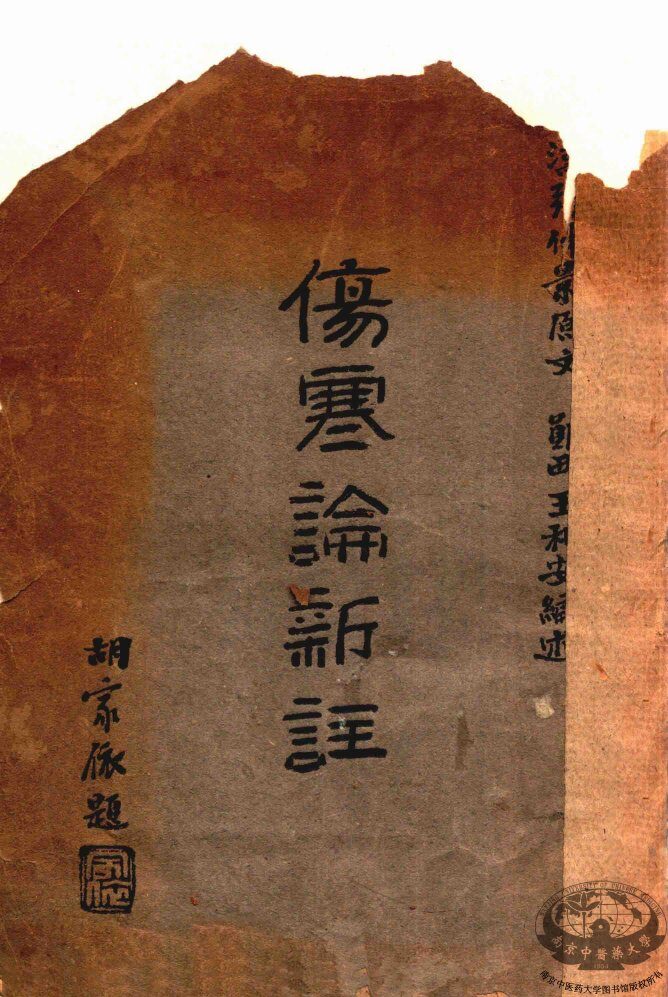 漢張仲景原文 鄞西王和安編述
傷寒論新註
胡家依題
南京中醫藥大學
1954
南京中医药大学图书馆版权所有